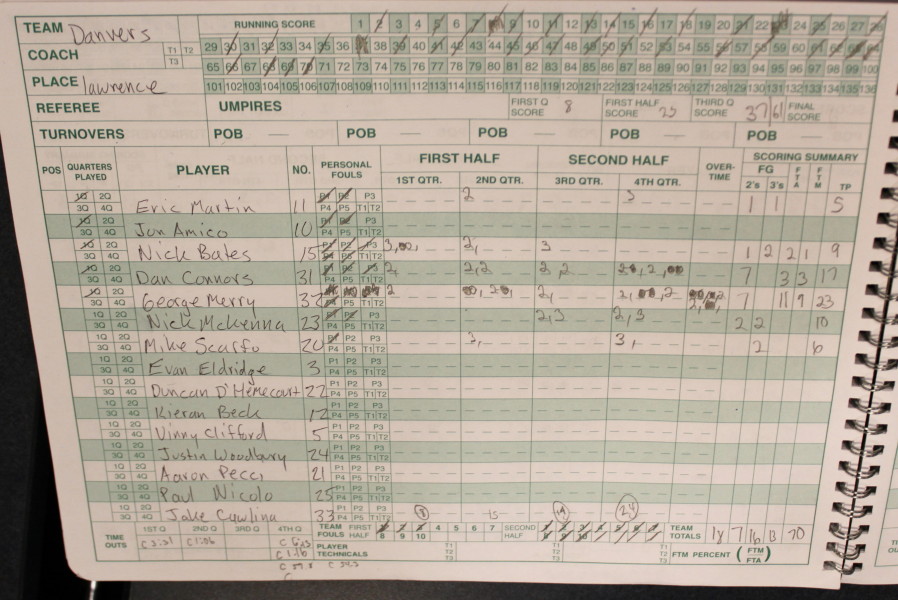 TEAM Danvers RUNNING SCORE 1 2 3 4 5 6 7 9 10 11 12 13 14 15 16 17 18 19 20 21 22 24 25 26 27 28
COACH T1 T2 T3 29 30 31 32 33 34 35 36 38 39 40 41 42 43 44 45 46 47 48 49 50 51 52 53 54 55 56 57 58 59 60 61 62 63 64
65 66 67 68 69 70 71 72 73 74 75 76 77 78 79 80 81 82 83 84 85 86 87 88 89 90 91 92 93 94 95 96 97 98 99 100
PLACE Lawrence 101 102 103 104 105 106 107 108 109 110 111 112 113 114 115 116 117 118 119 120 121 122 123 124 125 126 127 128 129 130 131 132 133 134 135 136
REFEREE UMPIRES FIRST Q SCORE 8 FIRST HALF SCORE 23 THIRD Q SCORE 37 61 FINAL SCORE
TURNOVERS POB — POB — POB — POB — POB —
POS QUARTERS PLAYED PLAYER NO. PERSONAL FOULS FIRST HALF SECOND HALF OVER-TIME SCORING SUMMARY
1ST QTR. 2ND QTR. 3RD QTR. 4TH QTR. FG 2's 3's FTA FTM TP
1Q 2Q 3Q 4Q Eric Martin 11 P1 P2 P3 P4 P5 T1 T2 2 3 1 5
1Q 2Q 3Q 4Q Jon Amico 10 P1 P2 P3 P4 P5 T1 T2
1Q 2Q 3Q 4Q Nick Bates 15 P1 P2 P3 P4 P5 T1 T2 3, 2, 3 1 2 2 1 9
1Q 2Q 3Q 4Q Dan Connors 31 P1 P2 P3 P4 P5 T1 T2 2, 2,2 2,2 7 3 3 17
1Q 2Q 3Q 4Q George Merry 32 2 2, 7 11 9 23
1Q 2Q 3Q 4Q Nick McKenna 23 P1 P2 P3 P4 P5 T1 T2 2,3 2,3 2 2 10
1Q 2Q 3Q 4Q Mike Scarfo 20 P1 P2 P3 P4 P5 T1 T2 3, 3, 2 6
1Q 2Q 3Q 4Q Evan Eldridge 3 P1 P2 P3 P4 P5 T1 T2
1Q 2Q 3Q 4Q Duncan D'Hemecourt 22 P1 P2 P3 P4 P5 T1 T2
1Q 2Q 3Q 4Q Kieran Beck 12 P1 P2 P3 P4 P5 T1 T2
1Q 2Q 3Q 4Q Vinny Clifford 5 P1 P2 P3 P4 P5 T1 T2
1Q 2Q 3Q 4Q Justin Woodbury 24 P1 P2 P3 P4 P5 T1 T2
1Q 2Q 3Q 4Q Aaron Pecci 21 P1 P2 P3 P4 P5 T1 T2
1Q 2Q 3Q 4Q Paul Nicolo 25 P1 P2 P3 P4 P5 T1 T2
1Q 2Q 3Q 4Q Jake Cawlina 33 P1 P2 P3 P4 P5 T1 T2 8 15 14 24
TIME OUTS 1ST Q 2ND Q 3RD Q 4TH Q TEAM FOULS FIRST HALF 4 5 6 7 8 9 10 SECOND HALF TEAM TOTALS 18 7 16 13 70
C 1:06 C 1:16 PLAYER TECHNICALS T1 T2 T3 T1 T2 T3 T1 T2 T3 FTM PERCENT (FTM/FTA)